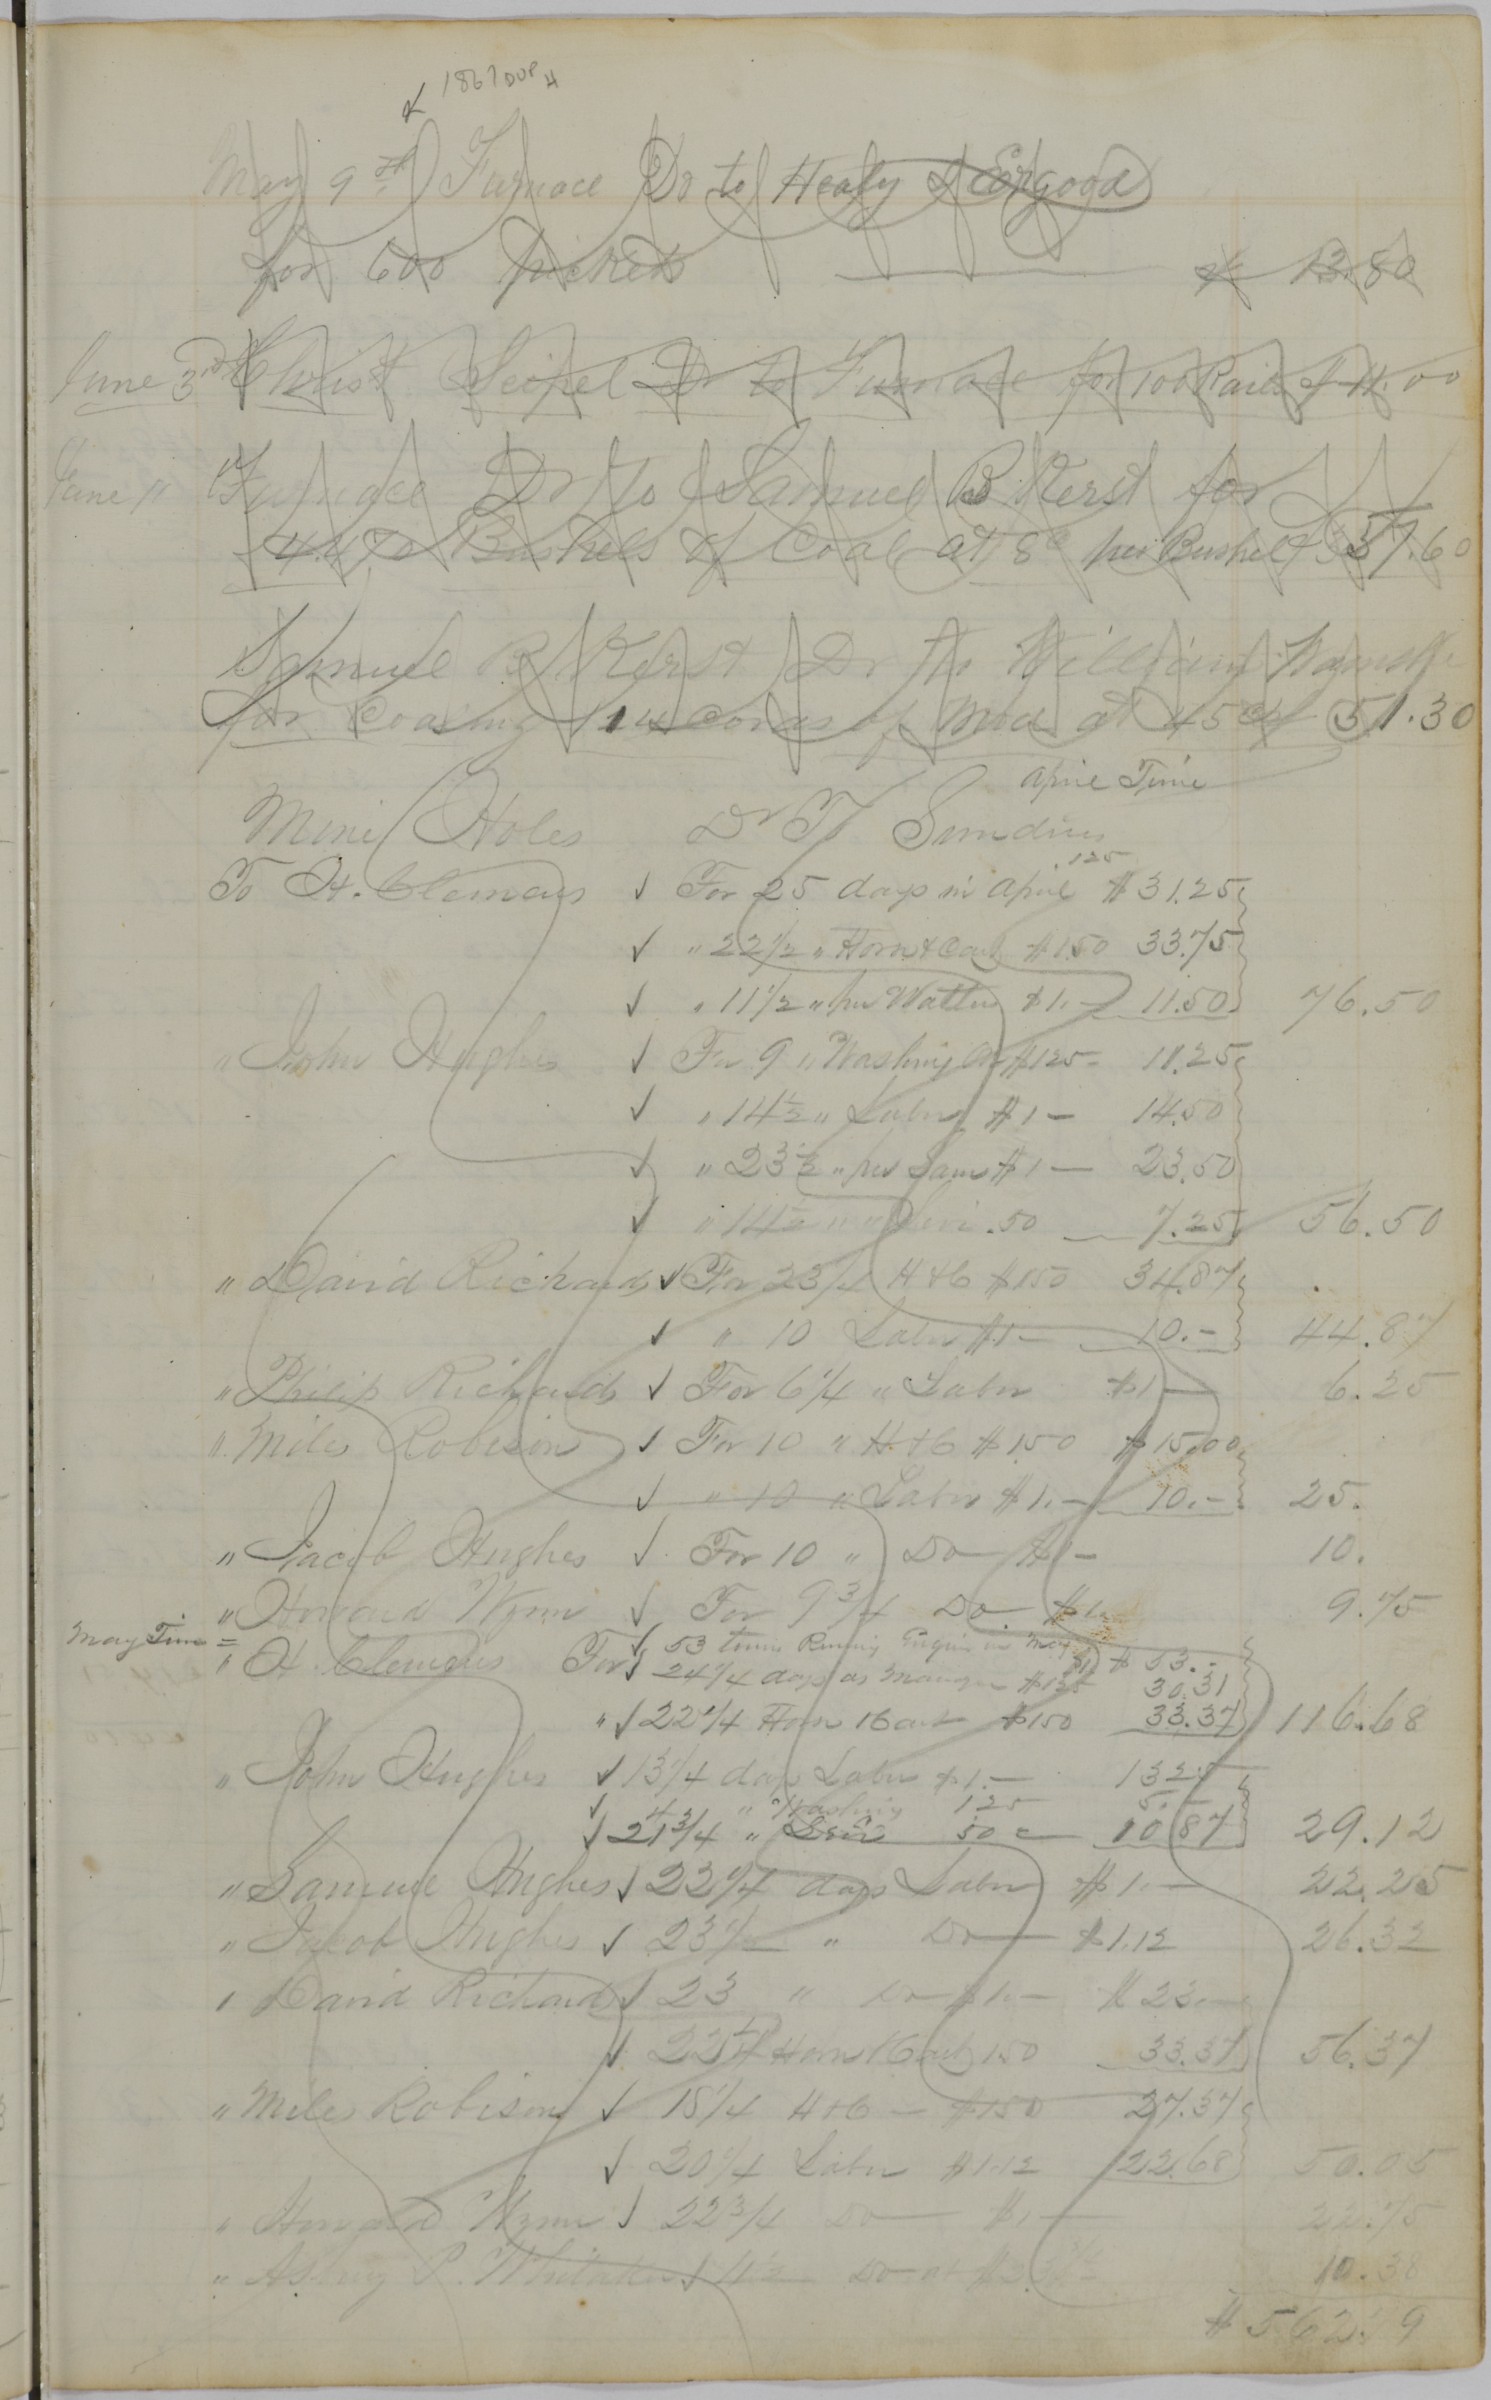 1867 DUP 4
May 9th Furnace Dr to Healy & Ergood
for 600 pickets $ 13.80
June 3rd Christ Seipel Dr to Furnace for 100 Rails $ 11.00
June 11 Furnace Dr To Samuel B Kerst for
Bushels of Coal at 8c per Bushel $ 357.60
Samuel B Kerst Dr to William
for Coaling 114 cords of Wood at 45 c $ 51.30
April Time
Mine Holes Dr To Sundries
To H. Clemens ✓ For 25 days in April 125 $ 31.25
✓ " 22 1/2 " Horse & Cart $1.50 33.75
✓ " 11 1/2 " per Walter $1.- 11.50 76.50
" John Hughes ✓ For 9 " Washing at $125 - 11.25
✓ " 14 1/2 " Labor $1 - 14.50
✓ " 23 1/2 " per Sam $1 - 23.50
✓ " 14 1/2 " " Levi .50 7.25 56.50
" David Richards ✓ For 23 1/4 H & C $150 34.87
✓ " 10 Labor $1 - 10.- 44.87
" Philip Richards ✓ For 6 1/4 " Labor $1 - 6.25
" Miles Robison ✓ For 10 " H & C $1.50 $15.00
✓ " 10 " Labor $1.- 10.- 25.
" Jacob Hughes ✓ For 10 " Do $1 - 10.
" Howard Wynn ✓ For 9 3/4 Do $1.- 9.75
May Time = " H. Clemens For ✓ 53 turns Running Engine in May $1 $ 53.-
✓ 24 1/4 days as Manager $125 30.31
" ✓ 22 1/4 Horse & Cart $150 33.37 116.68
" John Hughes ✓ 13 1/4 days Labor $1.- 13.25
✓ 4 " Washing 1.25 5.-
✓ 21 3/4 " Levi 50 c 10.87 29.12
" Samuel Hughes ✓ 22 1/4 days Labor $1.- 22.25
" Jacob Hughes ✓ 23 1/2 " Do $1.12 26.32
" David Richards ✓ 23 " Do $1.- $ 23.-
✓ 22 1/4 Horse & Cart 1.50 33.37 56.37
" Miles Robison ✓ 18 1/4 H & C - $150 27.37
✓ 20 1/4 Labor $1.12 22.68 50.05
" Howard Wynn ✓ 22 3/4 Do $1.- 22.75
" P. Whitaker ✓ Do 10.38
$ 562.79